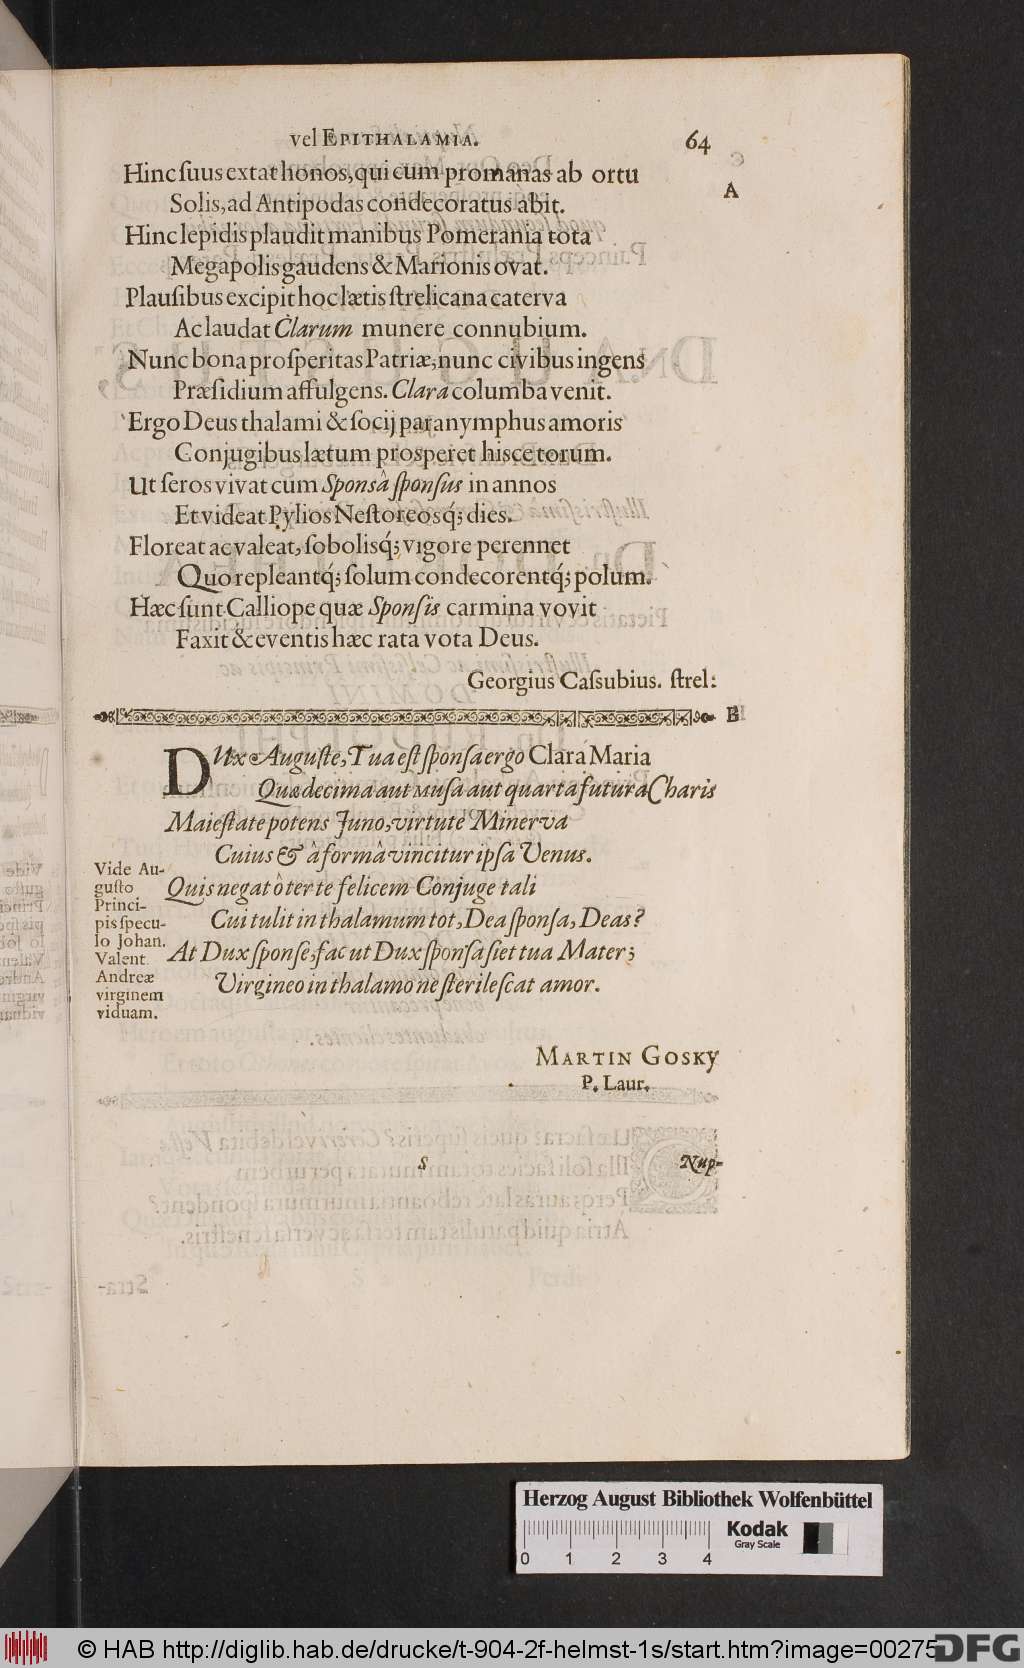 vel EPITHALAMIA. 64
Hinc ſuus extat honos, qui cum promanas ab ortu
A
Solis, ad Antipodas condecoratus abit.
Hinc lepidis plaudit manibus Pomerania tota
Megapolis gaudens & Marionis ovat.
Plauſibus excipit hoc lætis ſtrelicana caterva
Ac laudat Clarum munere connubium.
Nunc bona proſperitas Patriæ, nunc civibus ingens
Præſidium affulgens. Clara columba venit.
Ergo Deus thalami & ſocij paranymphus amoris
Conjugibus lætum prosperet hisce torum.
Ut ſeros vivat cum Sponsâ ſponſus in annos
Et videat Pylios Neſtoreosq́; dies.
Floreat ac valeat, ſobolisq́; vigore perennet
Quo repleantq́; ſolum condecorentq́; polum.
Hæc ſunt Calliope quæ Sponſis carmina vovit
Faxit & eventis hæc rata vota Deus.
Georgius Caſsubius. ſtrel:
B
DUx Auguſte, Tua eſt ſponſa ergo Clara Maria
Quæ decima aut Muſa aut quarta futura Charis
Maieſtate potens Juno, virtute Minerva
Cuius & â formâ vincitur ipſa Venus.
Quis negat ô ter te felicem Conjuge tali
Cui tulit in thalamum tot, Dea ſponſa, Deas?
At Dux ſponſe, fac ut Dux ſponſa ſiet tua Mater;
Virgineo in thalamo ne ſterileſcat amor.
Vide Au-
guſto
Princi-
pis ſpecu-
lo Johan.
Valent.
Andreæ
virginem
viduam.
MARTIN GOSKY
P. Laur.
S Nup-
Herzog August Bibliothek Wolfenbüttel
Kodak
Gray Scale
0 1 2 3 4
© HAB http://diglib.hab.de/drucke/t-904-2f-helmst-1s/start.htm?image=00275
DFG